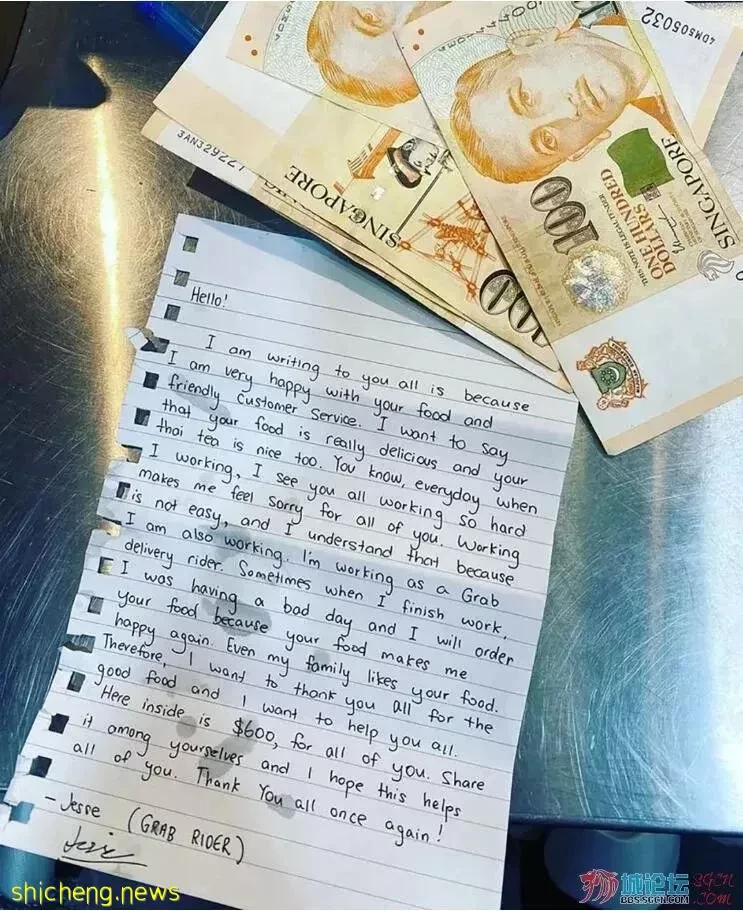 4DM505032
3AN32922
SINGAPORE
100
SINGAPORE
THIS NOTE IS LEGAL TENDER
ONE HUNDRED
DOLLARS
100
Hello!
I am writing to you all is because
I am very happy with your food and
friendly customer service. I want to say
that your food is really delicious and your
thai tea is nice too. You know, everyday when
I working, I see you all working so hard
makes me feel sorry for all of you. Working
is not easy, and I understand that because
I am also working. I'm working as a Grab
delivery rider. Sometimes when I finish work,
I was having a bad day and I will order
your food because your food makes me
happy again. Even my family likes your food.
Therefore, I want to thank you all for the
good food and I want to help you all.
Here inside is $600, for all of you. Share
it among yourselves and I hope this helps
all of you. Thank You all once again!
- Jesse (GRAB RIDER)
Jesse
shicheng.news
狮城论坛
SGCN.COM
BBS.SGCN.COM